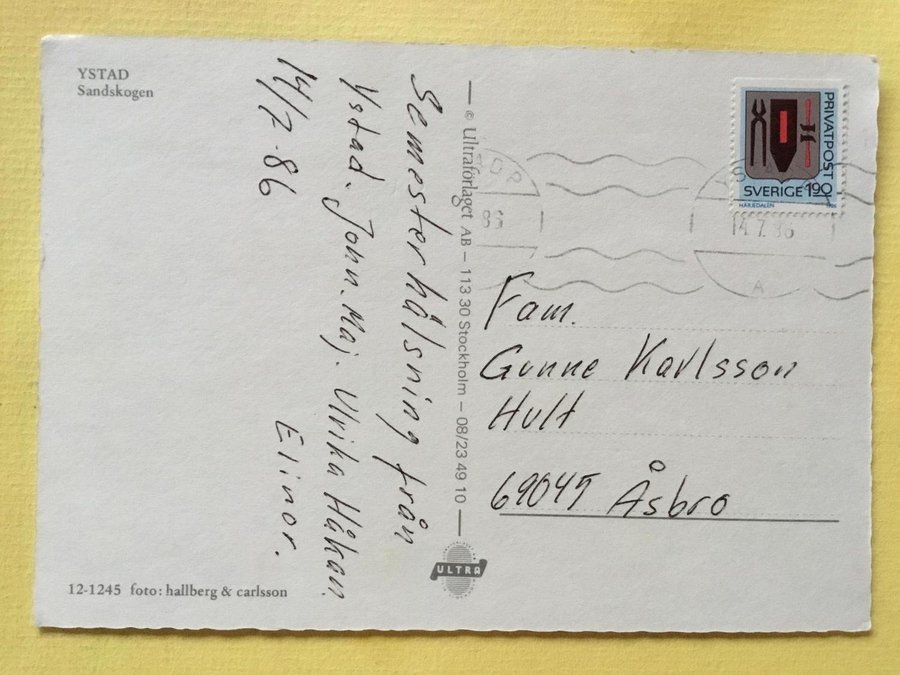 YSTAD
Sandskogen
14/7-86
Semesterhälsning från
Ystad. John. Maj. Ulrika Håkan.
Elinor.
© Ultraförlaget AB – 113 30 Stockholm – 08/23 49 10
ULTRA
PRIVATPOST
SVERIGE 1.90
HÄRJEDALEN
14.7.86
A
86
Fam.
Gunne Karlsson
Hult
69045 Åsbro
12-1245 foto: hallberg & carlsson